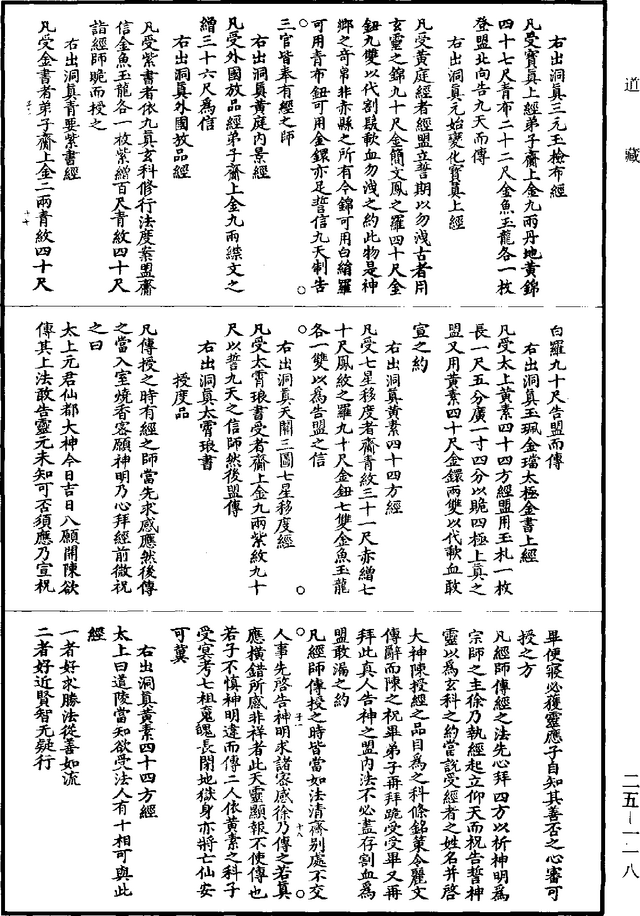 道藏
右出洞真三元玉檢布經
凡受寶真上經弟子齎上金九兩丹地黃錦
四十七尺青布二十二尺金魚玉龍各一枚
登盟北向告九天而傳
右出洞真元始變化寶真上經
凡受黃庭經者經盟立誓期以勿洩古者用
玄靈之錦九十尺金簡文鳳之羅四十尺金
鈕九雙以代割髮歃血勿洩之約此物是神
鄉之奇帛非赤縣之所有今錦可用白絹羅
可用青布鈕可用金鐶亦足誓信九天制告
三官皆奉有經之師
右出洞真黃庭內景經
凡受外國放品經弟子齎上金九兩緤文之
繒三十六尺為信
右出洞真外國放品經
凡受紫書者依九真玄科修行法度案盟齎
信金魚玉龍各一枚紫繒百尺青紋四十尺
詣經師跪而授之
右出洞真青要紫書經
凡受金書者弟子齎上金二兩青紋四十尺
白羅九十尺告盟而傳
右出洞真玉珮金璫太極金書上經
凡受太上黃素四十四方經盟用玉札一枚
長一尺五分廣一寸四分以跪四極上真之
盟又用黃素四十尺金鐶兩雙以代歃血敢
宣之約
右出洞真黃素四十四方經
凡受七星移度者齎青紋三十一尺赤繒七
十尺鳳紋之羅九十尺金鈕七雙金魚玉龍
各一雙以為告盟之信
右出洞真天關三圖七星移度經
凡受太霄琅書受者齎上金九兩紫紋九十
尺以誓九天之信師然後盟傳
右出洞真太霄琅書
授度品
凡傳授之時有經之師當先求感應然後傳
之當入室燒香密願神明乃心拜經前微祝
之曰
太上元君仙都大神今日吉日八願開陳欲
傳其上法敢告靈元未知可否須應乃宣祝
畢便寢必獲靈應子自知其善否之心審可
授之方
凡經師傳經之法先心拜四方以祈神明為
宗師之主徐乃執經起立仰天而祝告誓神
靈以為玄科之約當說受經者之姓名并啓
大神陳授經之品目為之科條銘策令麗文
傳辭而陳之祝畢弟子再拜跪受受畢又再
拜此真人告神之盟內法不必盡存割血為
盟敢漏之約
凡經師傳授之時皆當如法清齋别處不交
人事先啓告神明求諸密感徐乃傳之若真
應橫錯所感非祥者此天靈顯報不使傳也
若子不慎神明違而傳二人依黃素之科子
受冥考七祖魔魄長閉地獄身亦將亡仙安
可冀
右出洞真黃素四十四方經
太上曰道陵當知欲受法人有十相可與此
經
一者好求勝法從善如流
二者好近賢智无疑行
二五—一一八